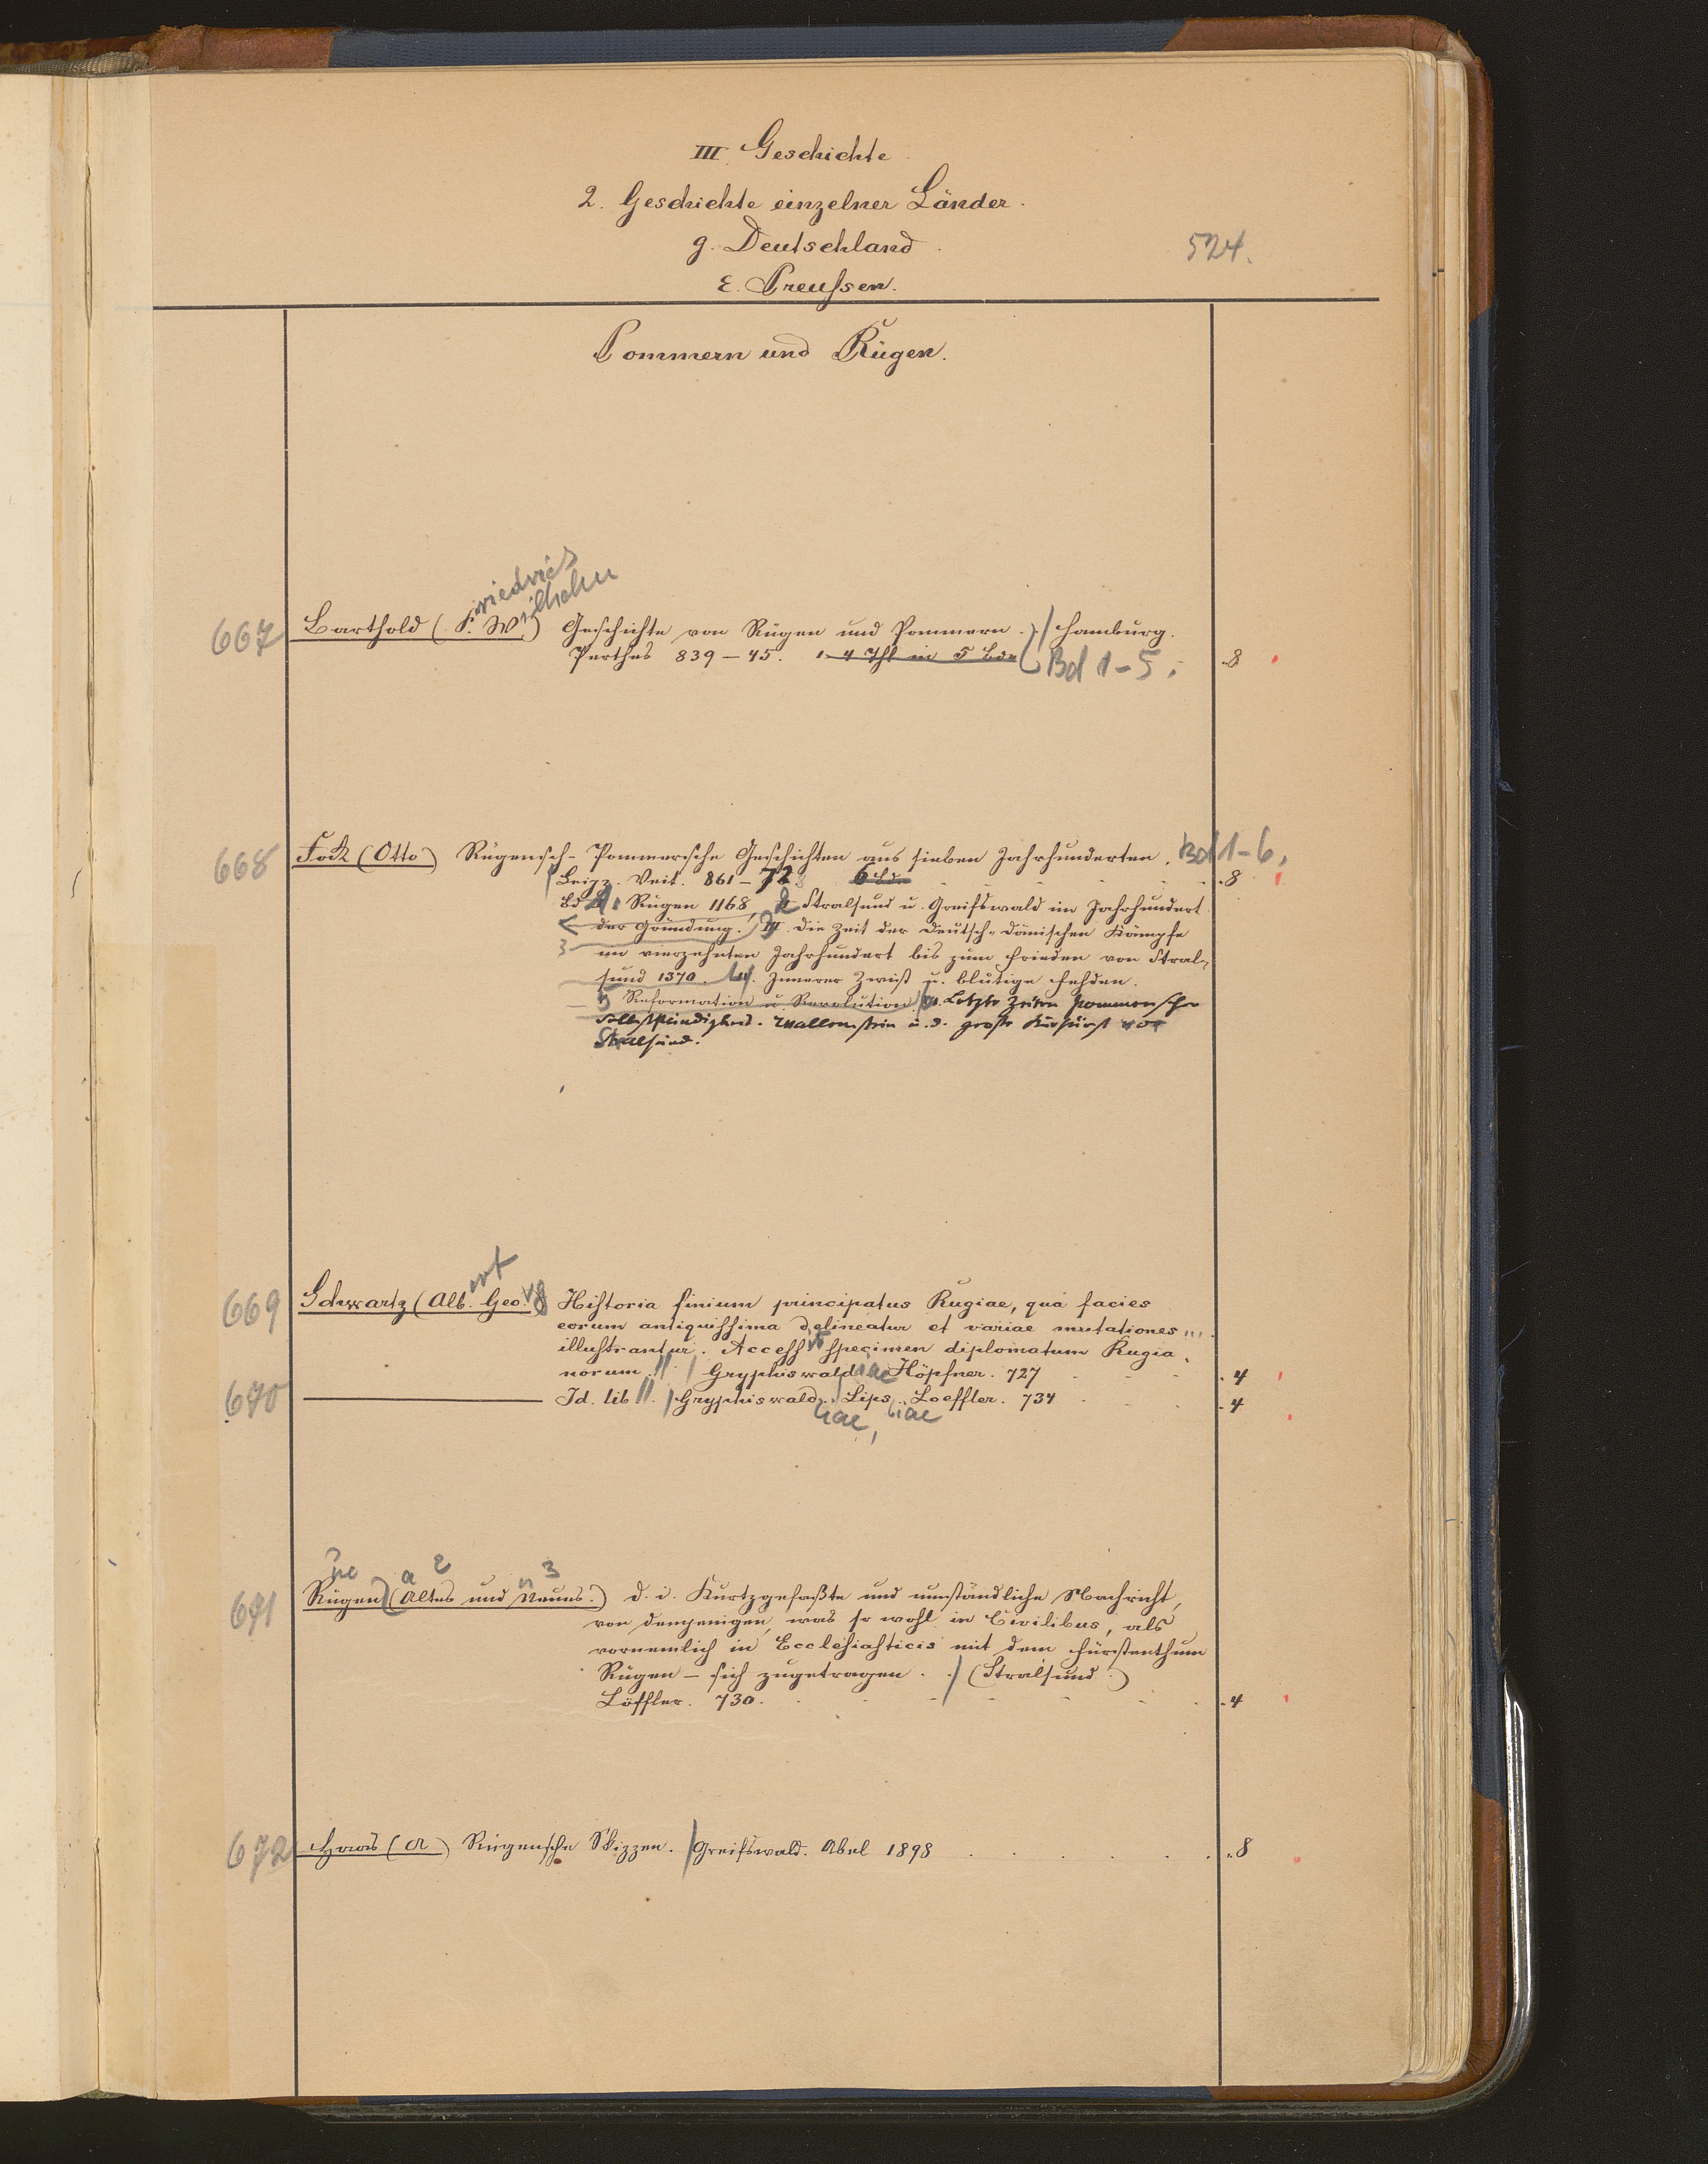 III Geschichte
2. Geschichte einzelner Länder.
g. Deutschland.
524.
ε. Preußen.
Pommern und Rügen.
667 Barthold (F.riedrich W.ilhelm) Geschichte von Rügen und Pommern. / Hamburg.
Perthes 839-45. 4 Thl in 5 Bde Bd 1-5. 8
668 Fock (Otto) Rügensch-Pommersche Geschichten aus sieben Jahrhunderten. Bd 1-6.
Leipz. Veit. 861-72 6 Bd. 8
Bd 1. Rügen 1168, 2 Stralsund u. Greifswald im Jahrhundert
der Gründung. III. Die Zeit der deutsch-dänischen Kämpfe
3 im vierzehnten Jahrhundert bis zum Frieden von Stral-
sund 1370. Innerer Zwist u. blutige Fehden.
5 Reformation u Revolution. Letzte Zeiten pommerscher
Selbstständigkeit. Wallenstein u. d. große Kurfürst vor
Stralsund.
669 Schwartz (Alb.ert Geo.rg) Historia finium principatus Rugiae, qua facies
eorum antiquissima delineatur et variae mutationes
illustrantur. Access.it specimen diplomatum Rugia-
norum. // / Gryphiswaldiae Höpfner. 727 4
670 Id. lib // . / Gryphiswald. Lips. Loeffler. 734 4
liae, iae
ne a 2 n 3
671 Rügen (Altes und Neues.) d. i. Kurtzgefaßte und umständliche Nachricht,
von demjenigen, was so wohl in Civilibus, als
vornemlich in Ecclesiasticis mit dem Fürstenthum
Rügen - sich zugetragen. / (Stralsund.)
Löffler. 730. 4
672 Haas (A) Rügensche Skizzen. / Greifswald. Abel 1898 8